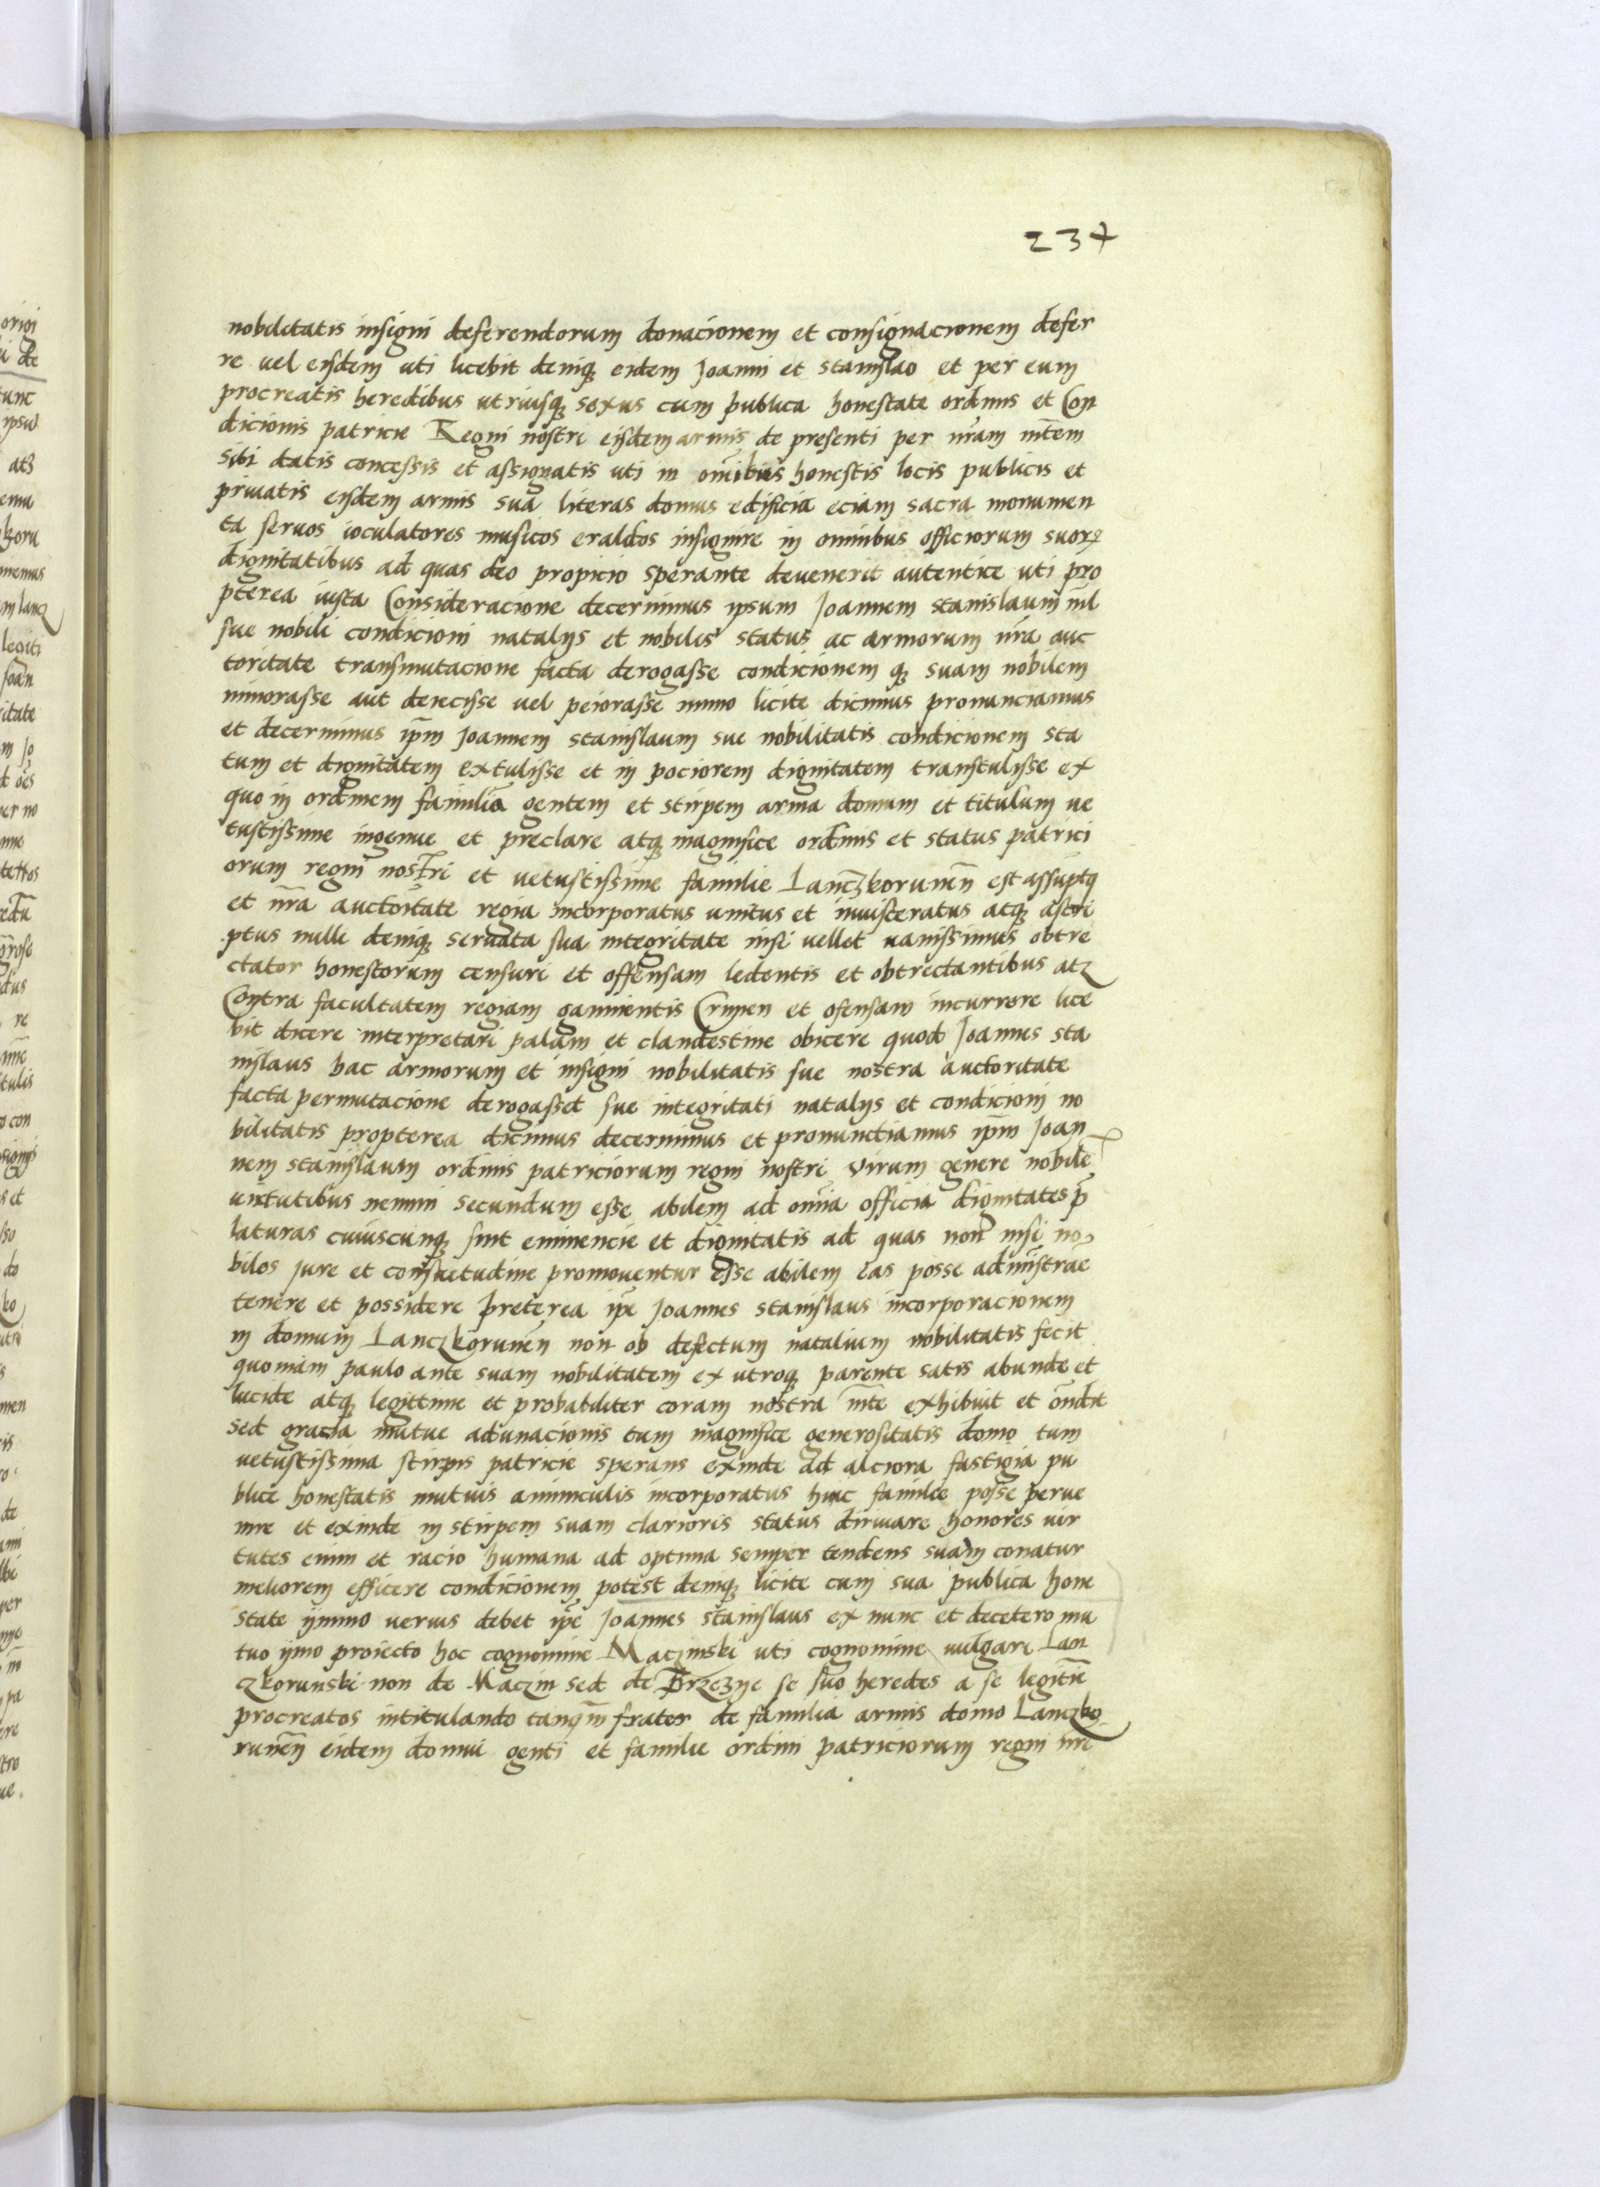 237
nobilitatis insigni deferendorum donacionem et consignacionem defer
re vel eisdem uti licebit deniq; eidem Joanni et Stanislao et per eum
procreatis heredibus utriusq; sexus cum publica honestate ordinis et Con
dicionis patricie Regni nostri eisdem armis de presenti per nr̄am mt̄em
sibi datis concessis et assignatis uti in om̄ibus honestis locis publicis et
privatis eisdem armis sua literas domus edificia eciam sacra monumen
ta servos ioculatores musicos eraldos insignire in omnibus officiorum suorꝝ
dignitatibus ad quas deo propicio sperante devenerit autentice uti pro
pterea iusta Consideracione decernimus ipsum Joannem Stanislaum nil
sue nobili condicioni natalijs et nobilis status ac armorum nr̄a auc
toritate transmutacione facta derogasse condicionem q; suam nobilem
minorasse aut deiecisse vel peiorasse immo licite dicimus pronunciamus
et decernimus ip̄m Joannem Stanislaum sue nobilitatis condicionem sta
tum et dignitatem extulisse et in pociorem dignitatem transtulisse ex
quo in ordinem familia gentem et stirpem arma domum et titulum ve
tustissime ingenue et preclare atq; magnifice ordinis et status patrici
orum regni nostri et vetustissime familie Lanczkorunēn est assūptꝰ
et nr̄a auctoritate regia incorporatus unitus et invisceratus atq; astri
ptus nulli deniq; servata sua integritate nisi vellet vanissimus obtre
ctator honestorum censuri et offensam ledentis et obtrectantibus atz
Contra facultatem regiam gannientis Crimen et ofensam incurrere lice
bit dicere interpretari palam et clandestine obicere quod Joannes Sta
nislaus hac armorum et insigni nobilitatis sue nostra auctoritate
facta permutacione derogasset sue integritati natalijs et condicioni no
bilitatis propterea dicimus decernimus et pronunctiamus ip̄m Joan
nem Stanislaum ordinis patriciorum regni nostri virum genere nobilē
virtutibus nemini secundum esse abilem ad om̄ia officia dignitates p̄
laturas cuiuscunq; sint eminencie et dignitatis ad quas non nisi no
biles jure et consuetudine promoventur esse abilem eas posse administrāe
tenere et possidere preterea ip̄e Joannes Stanislaus incorporacionem
in domum Lanczkorunēn non ob defectum natalium nobilitatis fecit
quoniam paulo ante suam nobilitatem ex utroq; parente satis abunde et
lucide atq; legittime et probabiliter coram nostra mt̄e exhibuit et on̄dit
sed gracia mutue adunacionis tum magnifice generositatis domo tum
vetustissima stirpis patricie sperans exinde ad alciora fastigia pu
blice honestatis mutuis aminiculis incorporatus huic familie posse perve
nire et exinde in stirpem suam clarioris status dirivare honores vir
tutes enim et racio humana ad optima semper tendens suam conatur
meliorem efficere condicionem potest deniq; licite cum sua publica hone
state ijmmo verius debet ip̄e Joannes Stanislaus ex nunc et decetero mu
tuo ijmo proiecto hoc cognomine Maczinski uti cognomine vulgari Lan
czkorunski non de Maczin sed de Brzezije se suo heredes a se legitīe
procreatos intitulando tanq̄m frater de familia armis domo Lanczko
runēn eidem domui genti et familie ordini patriciorum regni nr̄i